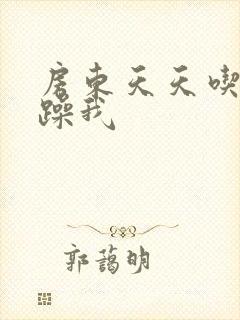 房东天天喫
躁我
郭蔼明